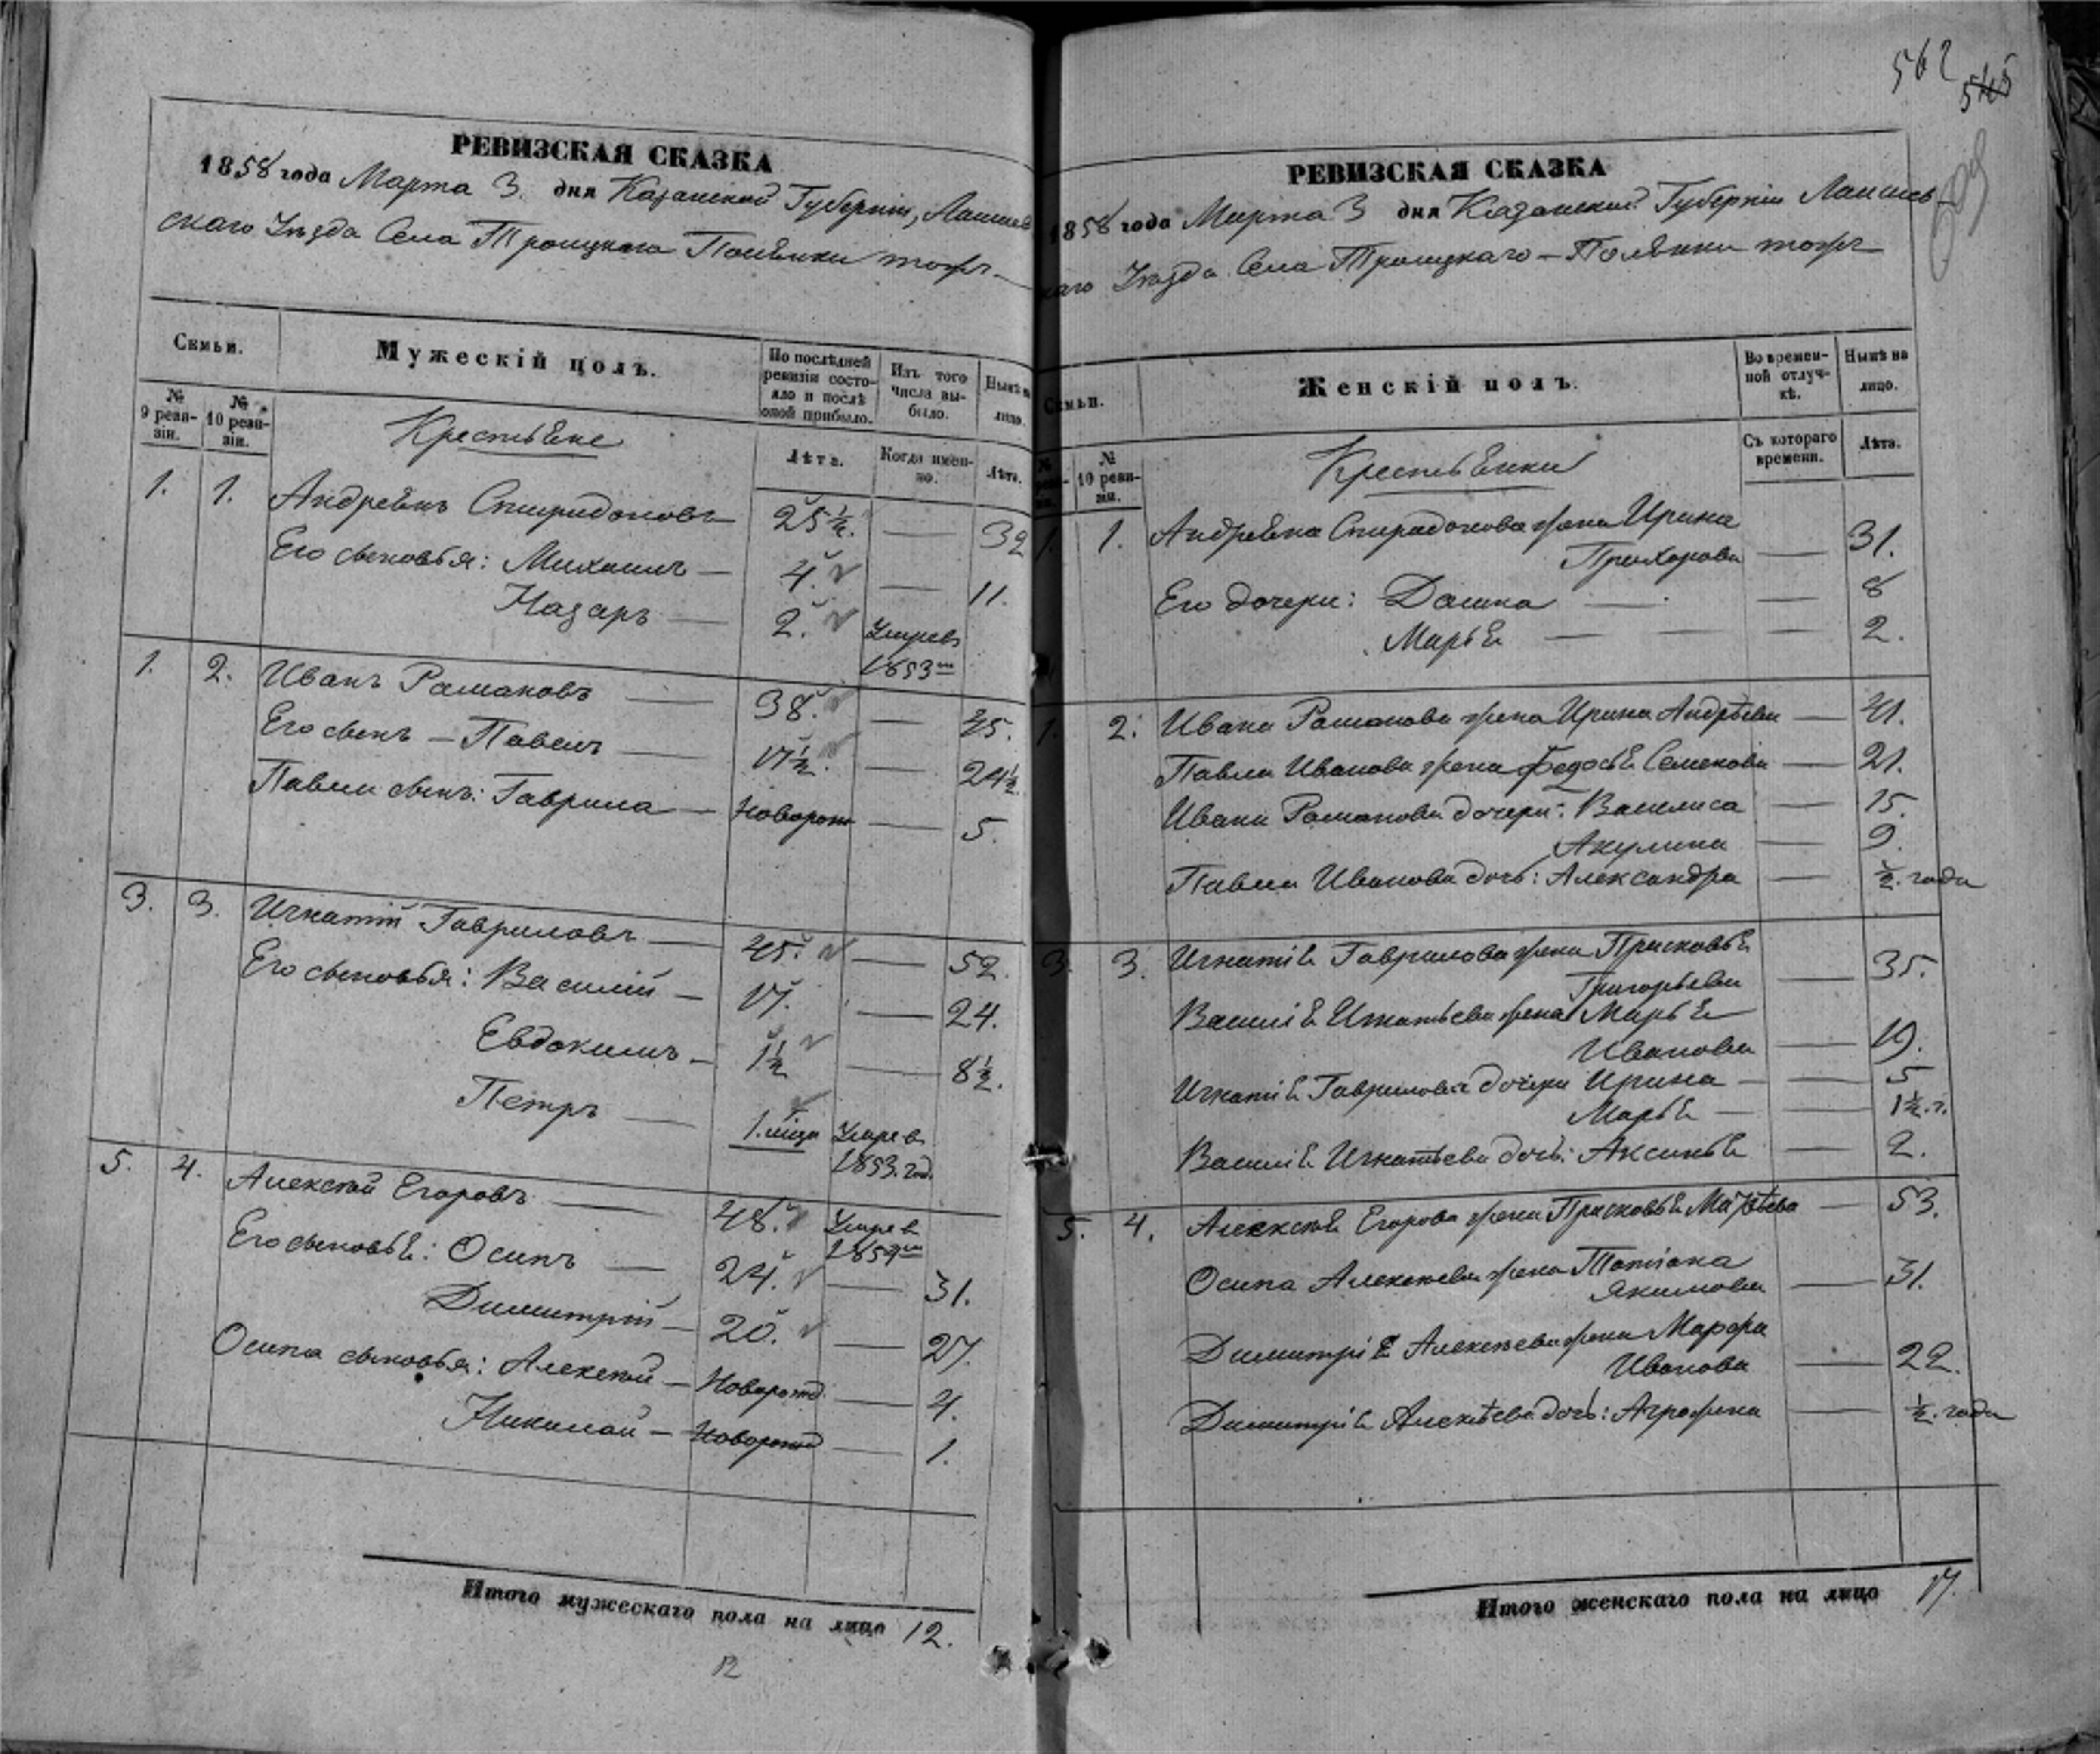 РЕВИЗСКАЯ СКАЗКА
1858 года Марта 3. дня Казанской Губерніи, Лаишев
скаго Уѣзда Села Троицкаго Полянки тожъ
Семьи.
Мужескій полъ.
По послѣдней ревизіи состояло и послѣ оной прибыло.
Изъ того числа выбыло.
Нынѣ на лицо.
№ 9 ревизіи.
№ 10 ревизіи.
Крестьяне
Лѣта.
Когда именно.
Лѣта.
1. 1. Андреянъ Спиридоновъ 25½. — 32
Его сыновья: Михаилъ — 4. — 11.
Назаръ — 2. Умре въ
1853мъ
1. 2. Иванъ Рамановъ — 38. — 45.
Его сынъ — Павелъ — 17½. — 24½.
Павла сынъ: Гаврила — Новорож — 5.
3. 3. Игнатій Гавриловъ — 45. — 52.
Его сыновья: Василій — 17. — 24.
Евдокимъ — 1½ — 8½.
Петръ — 1.мѣца Умре въ
1853 год.
5. 4. Алексѣй Егоровъ — 48. Умре в
185 мъ
Его сыновья: Осипъ — 24. — 31.
Димитрій — 20. — 27.
Осипа сыновья: Алексѣй — Новорожд. — 4.
Николай — Новорожд — 1.
Итого мужескаго пола на лицо 12.
12
562
545
РЕВИЗСКАЯ СКАЗКА
1858 года Марта 3 дня Казанской Губерніи Лаишев
каго Уѣзда Села Троицкаго — Полянки тожъ
Семьи.
Женскій полъ.
Во временной отлучкѣ.
Нынѣ на лицо.
№
№ 10 ревизіи.
Крестьянки
Съ котораго времени.
Лѣта.
1. 1. Андреяна Спиридонова жена Ирина
Прохорова — 31.
Его дочери: Дашка — — 8
Марья — — — 2.
1. 2. Ивана Раманова жена Ирина Андрѣева — 41.
Павла Иванова жена Федосья Семенова — 21.
Ивана Раманова дочери: Василиса — 15.
Акулина — 9.
Павла Иванова дочь: Александра — ½. года
3. 3. Игнатія Гаврилова жена Прасковья
Григорьева — 35.
Василія Игнатьева жена Марья
Иванова — 19.
Игнатія Гаврилова дочери Ирина — — 5
Марья — — 1½. г.
Василія Игнатьева дочь: Аксинья — 2.
5. 4. Алексѣя Егорова жена Прасковья Матвѣева — 53.
Осипа Алексѣева жена Татіана
Якимова — 31.
Димитрія Алексѣева жена Марфа
Иванова — 22.
Димитрія Алексѣева дочь: Аграфена — ½. года
Итого женскаго пола на лицо 17.